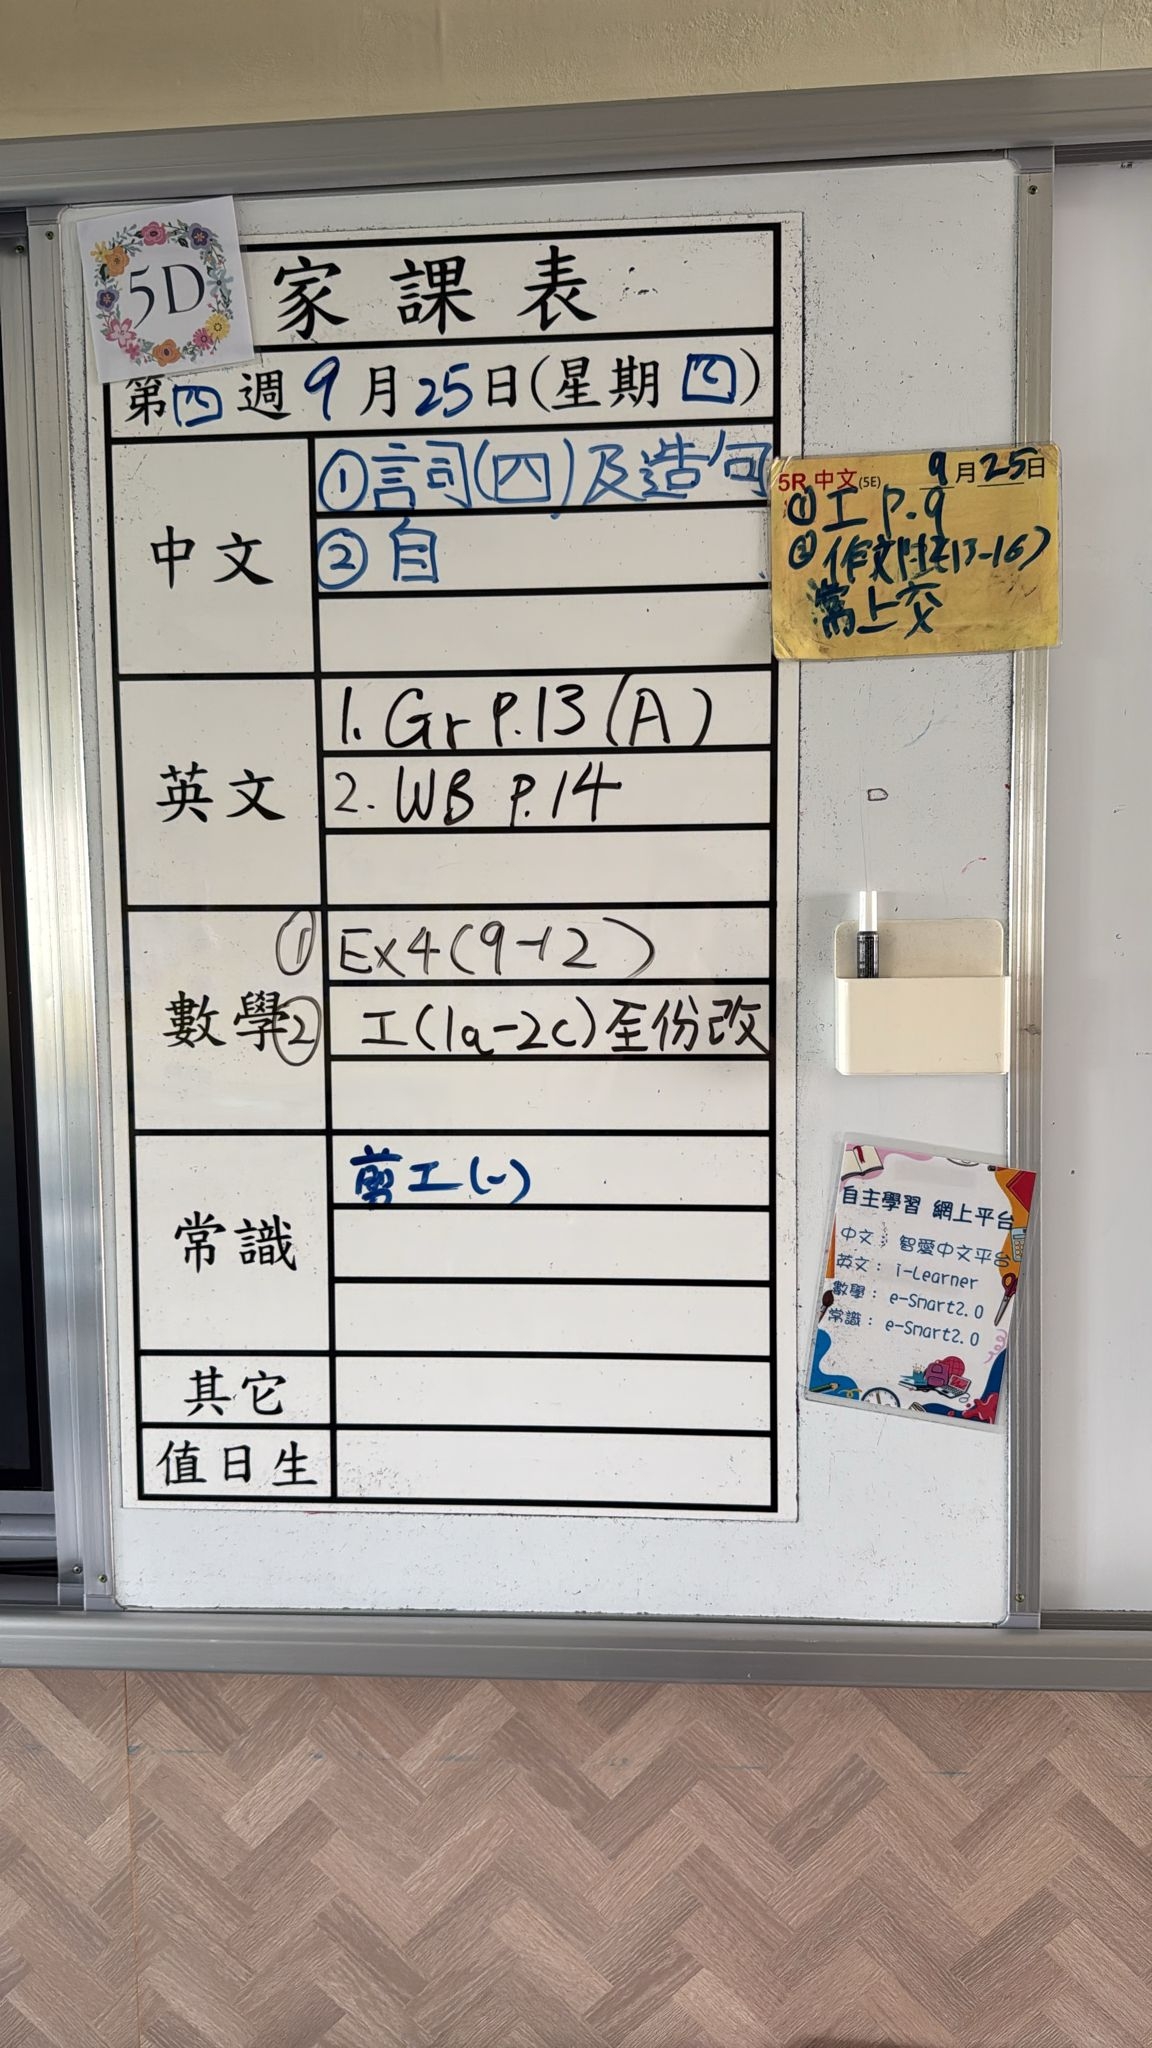 5D
家課表
第四週9月25日(星期四)
中文
①言司(四)及造句
②自
英文
1. Gr P.13(A)
2. WB P.14
數學
① Ex4(9-12)
② 工(1a-2c)至份改
常識
剪工(一)
其它
值日生
5R 中文(5E) 9月25日
① 工 P.9
② 作文(13-16)
上交
自主學習 網上平台
中文：智愛中文平台
英文：i-Learner
數學：e-Smart2.0
常識：e-Smart2.0